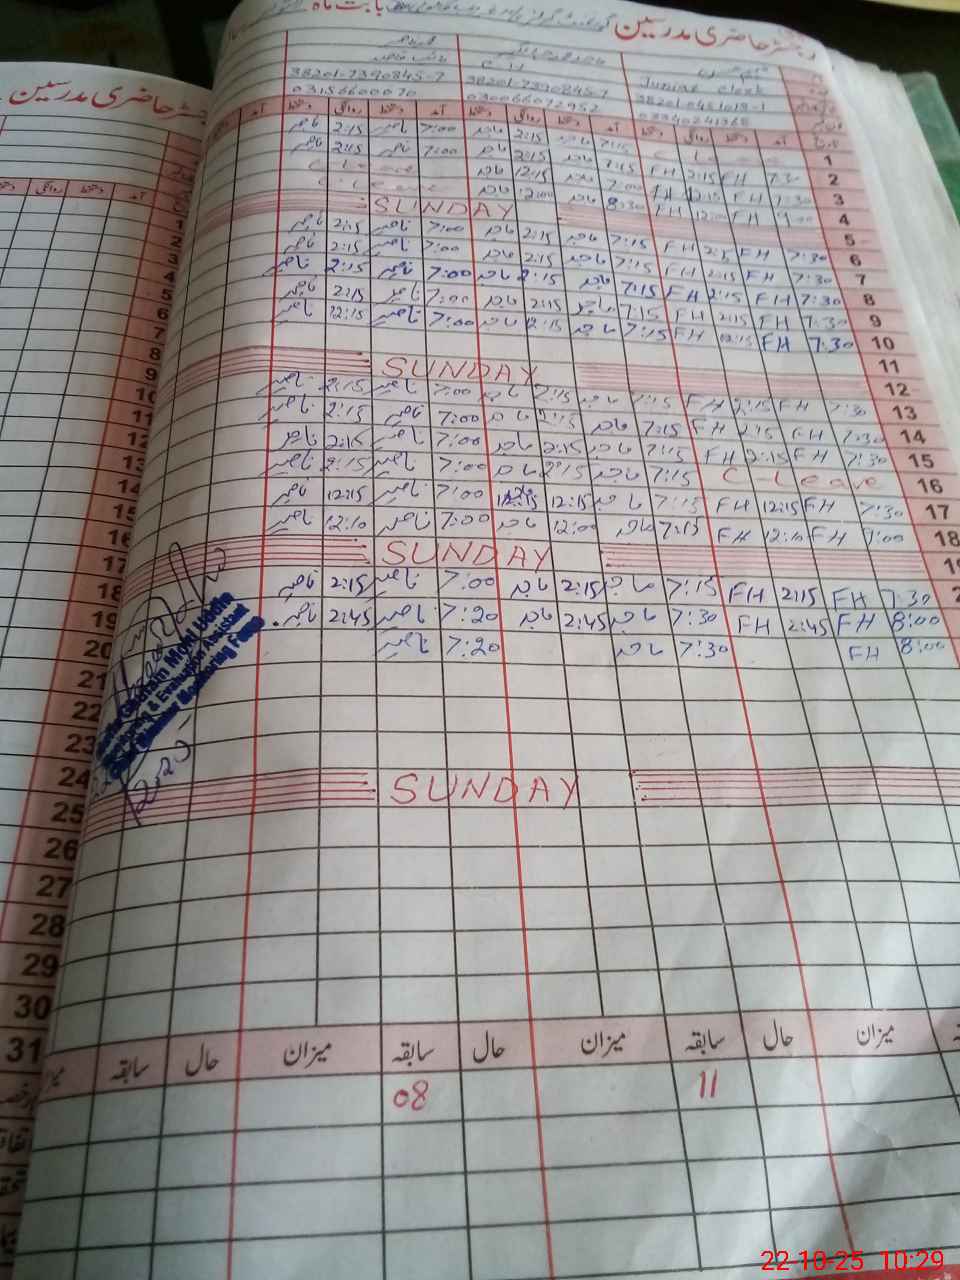 رجسٹر حاضری مدرسین بابت ماہ
رجسٹر حاضری مدرسین
Junior Clerk
38201-7390845-7 38201-7390845-7 38201-0451019-1
03156600070 03006607295
دستخط روانگی دستخط آمد دستخط روانگی دستخط آمد دستخط روانگی دستخط آمد
ناصر 2:15 ناصر 7:00 ماجد 2:15 ماجد 7:15 C Leave 1
ناصر 2:15 ناصر 7:00 ماجد 2:15 ماجد 7:15 FH 2:15 FH 7:30 2
C Leave ماجد 12:15 ماجد 7:00 FH 12:15 FH 7:30 3
C Leave ماجد 12:00 ماجد 8:30 FH 12:00 FH 9:00 4
SUNDAY 5
ناصر 2:15 ناصر 7:00 ماجد 2:15 ماجد 7:15 FH 2:15 FH 7:30 6
ناصر 2:15 ناصر 7:00 ماجد 2:15 ماجد 7:15 FH 2:15 FH 7:30 7
ناصر 2:15 ناصر 7:00 ماجد 2:15 ماجد 7:15 FH 2:15 FH 7:30 8
ناصر 2:15 ناصر 7:00 ماجد 2:15 ماجد 7:15 FH 2:15 FH 7:30 9
ناصر 12:15 ناصر 7:00 ماجد 12:15 ماجد 7:15 FH 12:15 FH 7:30 10
11
SUNDAY 12
ناصر 2:15 ناصر 7:00 ماجد 2:15 ماجد 7:15 FH 2:15 FH 7:30 13
ناصر 2:15 ناصر 7:00 ماجد 2:15 ماجد 7:15 FH 2:15 FH 7:30 14
ناصر 2:15 ناصر 7:00 ماجد 2:15 ماجد 7:15 FH 2:15 FH 7:30 15
ناصر 2:15 ناصر 7:00 ماجد 2:15 ماجد 7:15 C-Leave 16
ناصر 12:15 ناصر 7:00 12:15 ماجد 7:15 FH 12:15 FH 7:30 17
ناصر 12:10 ناصر 7:00 ماجد 12:00 ماجد 7:15 FH 12:10 FH 9:00 18
SUNDAY
ناصر 2:15 ناصر 7:00 ماجد 2:15 ماجد 7:15 FH 2:15 FH 7:30
ناصر 2:45 ناصر 7:20 ماجد 2:45 ماجد 7:30 FH 2:45 FH 8:00
ناصر 7:20 ماجد 7:30 FH 8:00
Ghulam Mohi Uddin
Monitoring & Evaluation Assistant
Monitoring Force
SUNDAY
سابقہ حال میزان سابقہ حال میزان سابقہ حال میزان
08 11
دستخط روانگی دستخط آمد
1
2
3
4
5
6
7
8
9
10
11
12
13
14
15
16
17
18
19
20
21
22
23
24
25
26
27
28
29
30
31
22-10-25 10:29